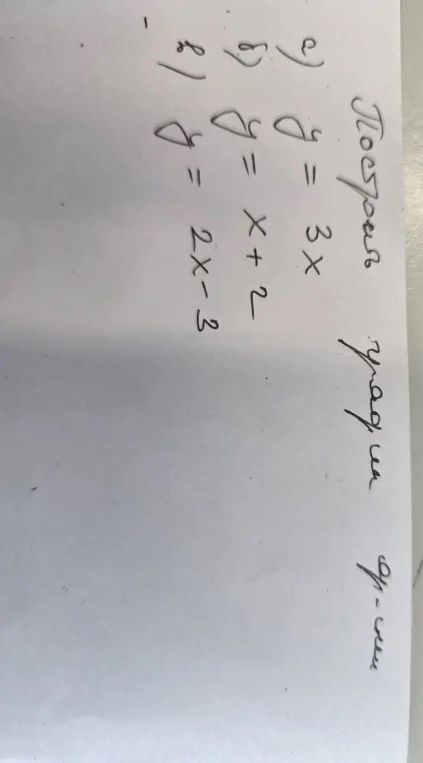 Построить график ф-ции
а) y = 3x
б) y = x + 2
в) y = 2x - 3